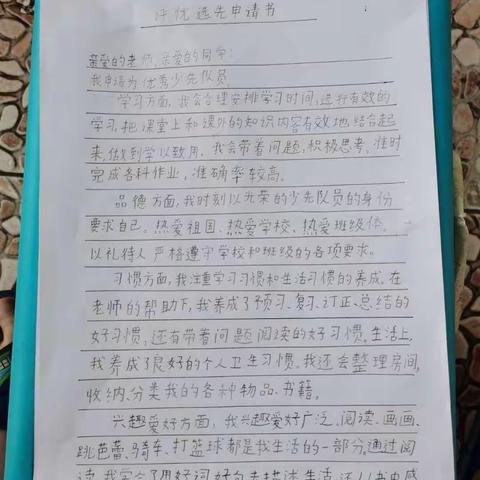 评优选先申请书
亲爱的老师,亲爱的同学:
我申请为优秀少先队员
学习方面,我会合理安排学习时间,进行有效的
学习,把课堂上和课外的知识内容有效地结合起
来,做到学以致用。我会带着问题,积极思考,准时
完成各科作业,准确率较高。
品德方面,我时刻以光荣的少先队员的身份
要求自己。热爱祖国、热爱学校、热爱班级体。
以礼待人严格遵守学校和班级的各项要求。
习惯方面,我注重学习习惯和生活习惯的养成。在
老师的帮助下,我养成了预习、复习、订正、总结的
好习惯,还有带着问题阅读的好习惯。生活上,
我养成了良好的个人卫生习惯。我还会整理房间,
收纳、分类我的各种物品、书籍。
兴趣爱好方面,我兴趣爱好广泛、阅读、画画、
跳芭蕾、骑车、打篮球都是我生活的一部分。通过阅
读,我学会了用好词好句去描述生活,还从书中感